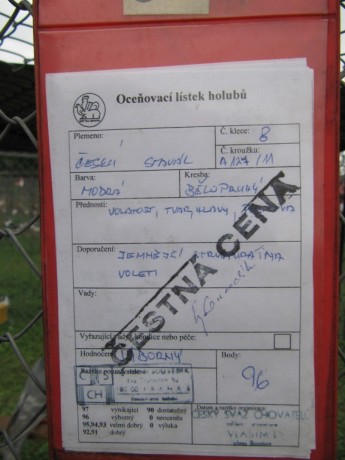 Oceňovací lístek holubů
Plemeno: Č. klece: 8
ČESKÝ STAVÁK Č. kroužku: A127/11
Barva: Kresba:
MODRÁ BĚLOPRUHÝ
Přednosti:
VOLATOST, TVAR HLAVY,
Doporučení:
JEMNĚJŠÍ STRUKTURA
VOLETI
Vady:
ČESTNÁ CENA
Vyřazující vady, kondice nebo péče:
Hodnocení: Body:
96
CH
97 vynikající 90 dostatečný
96 výborný 0 neoceněn
95,94,93 velmi dobrý 0 výluka
92,91 dobrý
Datum a razítko organizace
ČESKÝ SVAZ CHOVATELŮ
VLAŠIM
okres Benešov